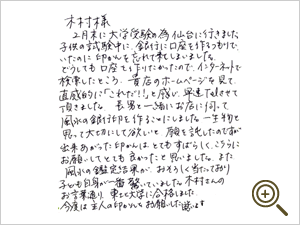 木村様
2月末に大学受験の為仙台に行きました
子供の試験中に、銀行に口座を作るつもりで
いたのに印かんを忘れて来てしまいました。
どうしても口座を作りたかったので、インターネットで
検索したところ、貴店のホームページを見て
直感的に「これだ!!」と感じ、早速Telさせて
頂きました。長男と一緒にお店に伺って
風水の銀行印を作ることにしました。一生物と
思って大切にして欲しいと願を託したのですが
出来あがった印かんは、とてもすばらしく、こちらに
お願いしてとても良かったと思いました。また
風水の鑑定結果が、おそろしく当たっており
子ども自身が一番驚いていました。木村さんの
お言葉通り、東北大学に合格しました。
今度は主人の印かんをお願いした